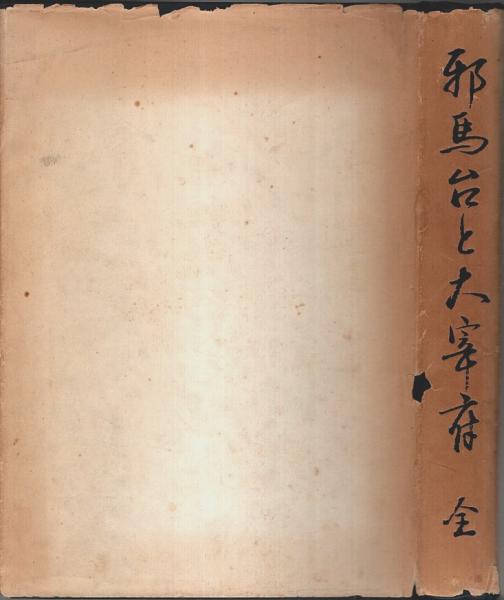 邪馬台と大宰府 全